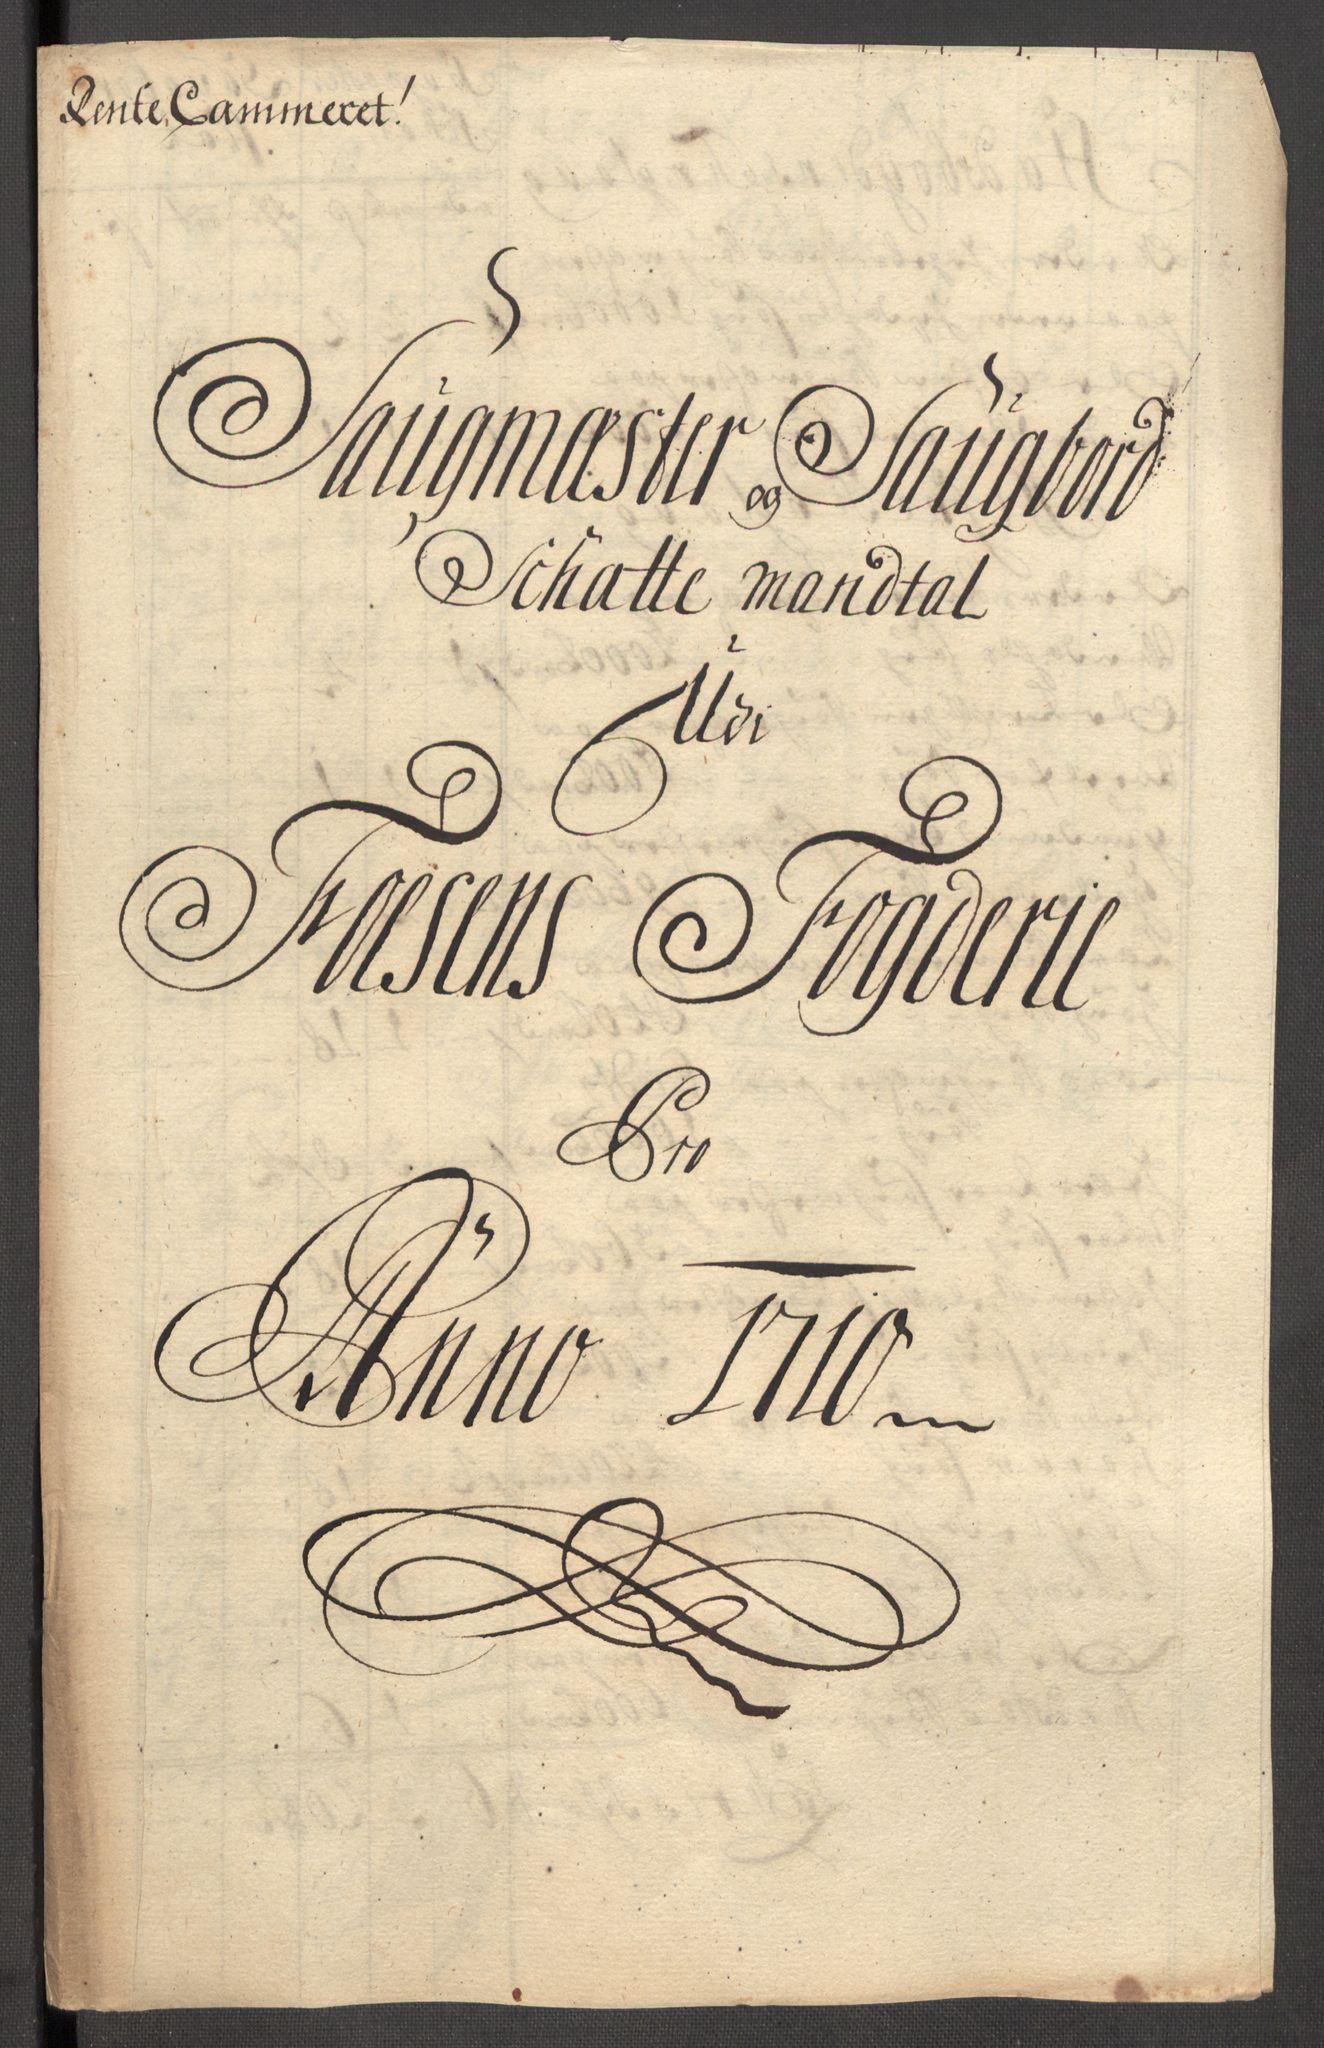 Rente Cammeret!
Saugmæster og Saugbord
Schatte mandtal
Udi
Fosens Fogderie
Pro
Anno 1710